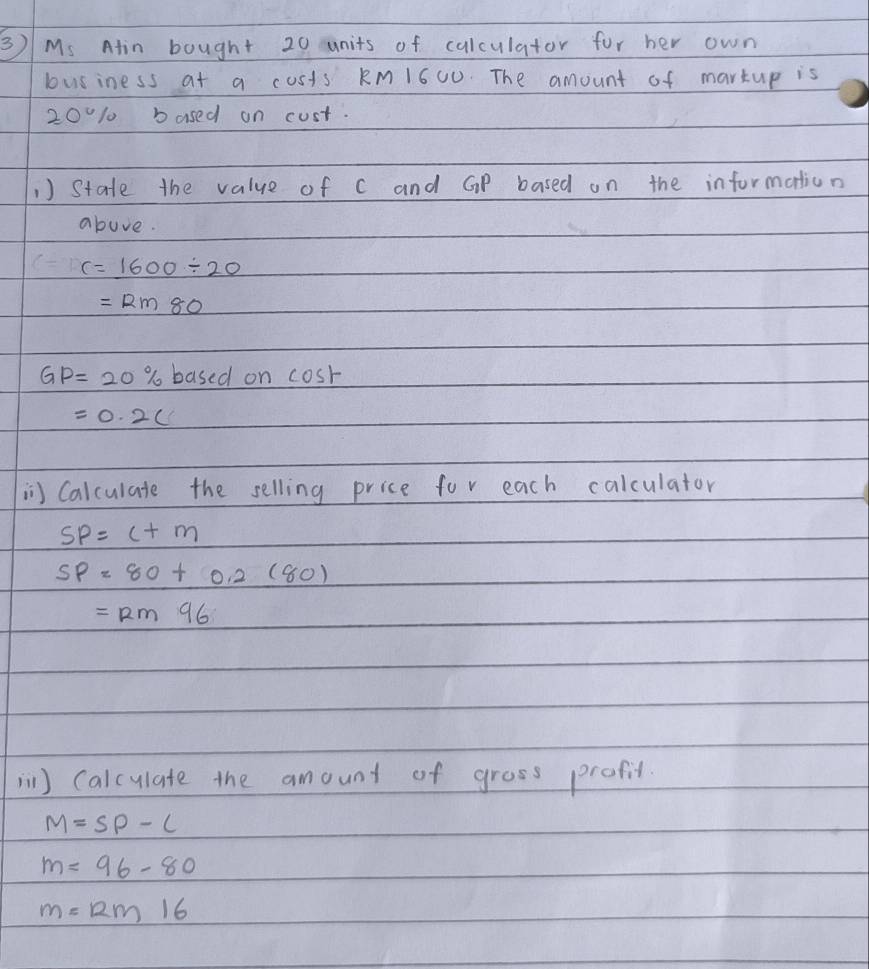 3) Ms Atin bought 20 units of calculator for her own
business at a costs RM 1600. The amount of markup is
20% based on cost.
i) State the value of C and GP based on the information
above.
C= 1600 ÷ 20
= RM 80
GP= 20% based on cost
= 0.2C
ii) Calculate the selling price for each calculator
SP= C+ m
SP = 80 + 0.2 (80)
= RM 96
iii) Calculate the amount of gross profit.
M = SP - C
m = 96 - 80
m = RM 16